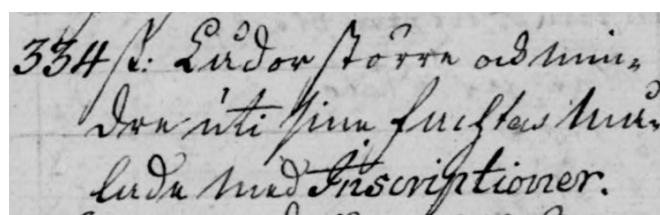 334 st: Lådor större och min=
dre uti sine fachter må=
lade med Inscriptioner.